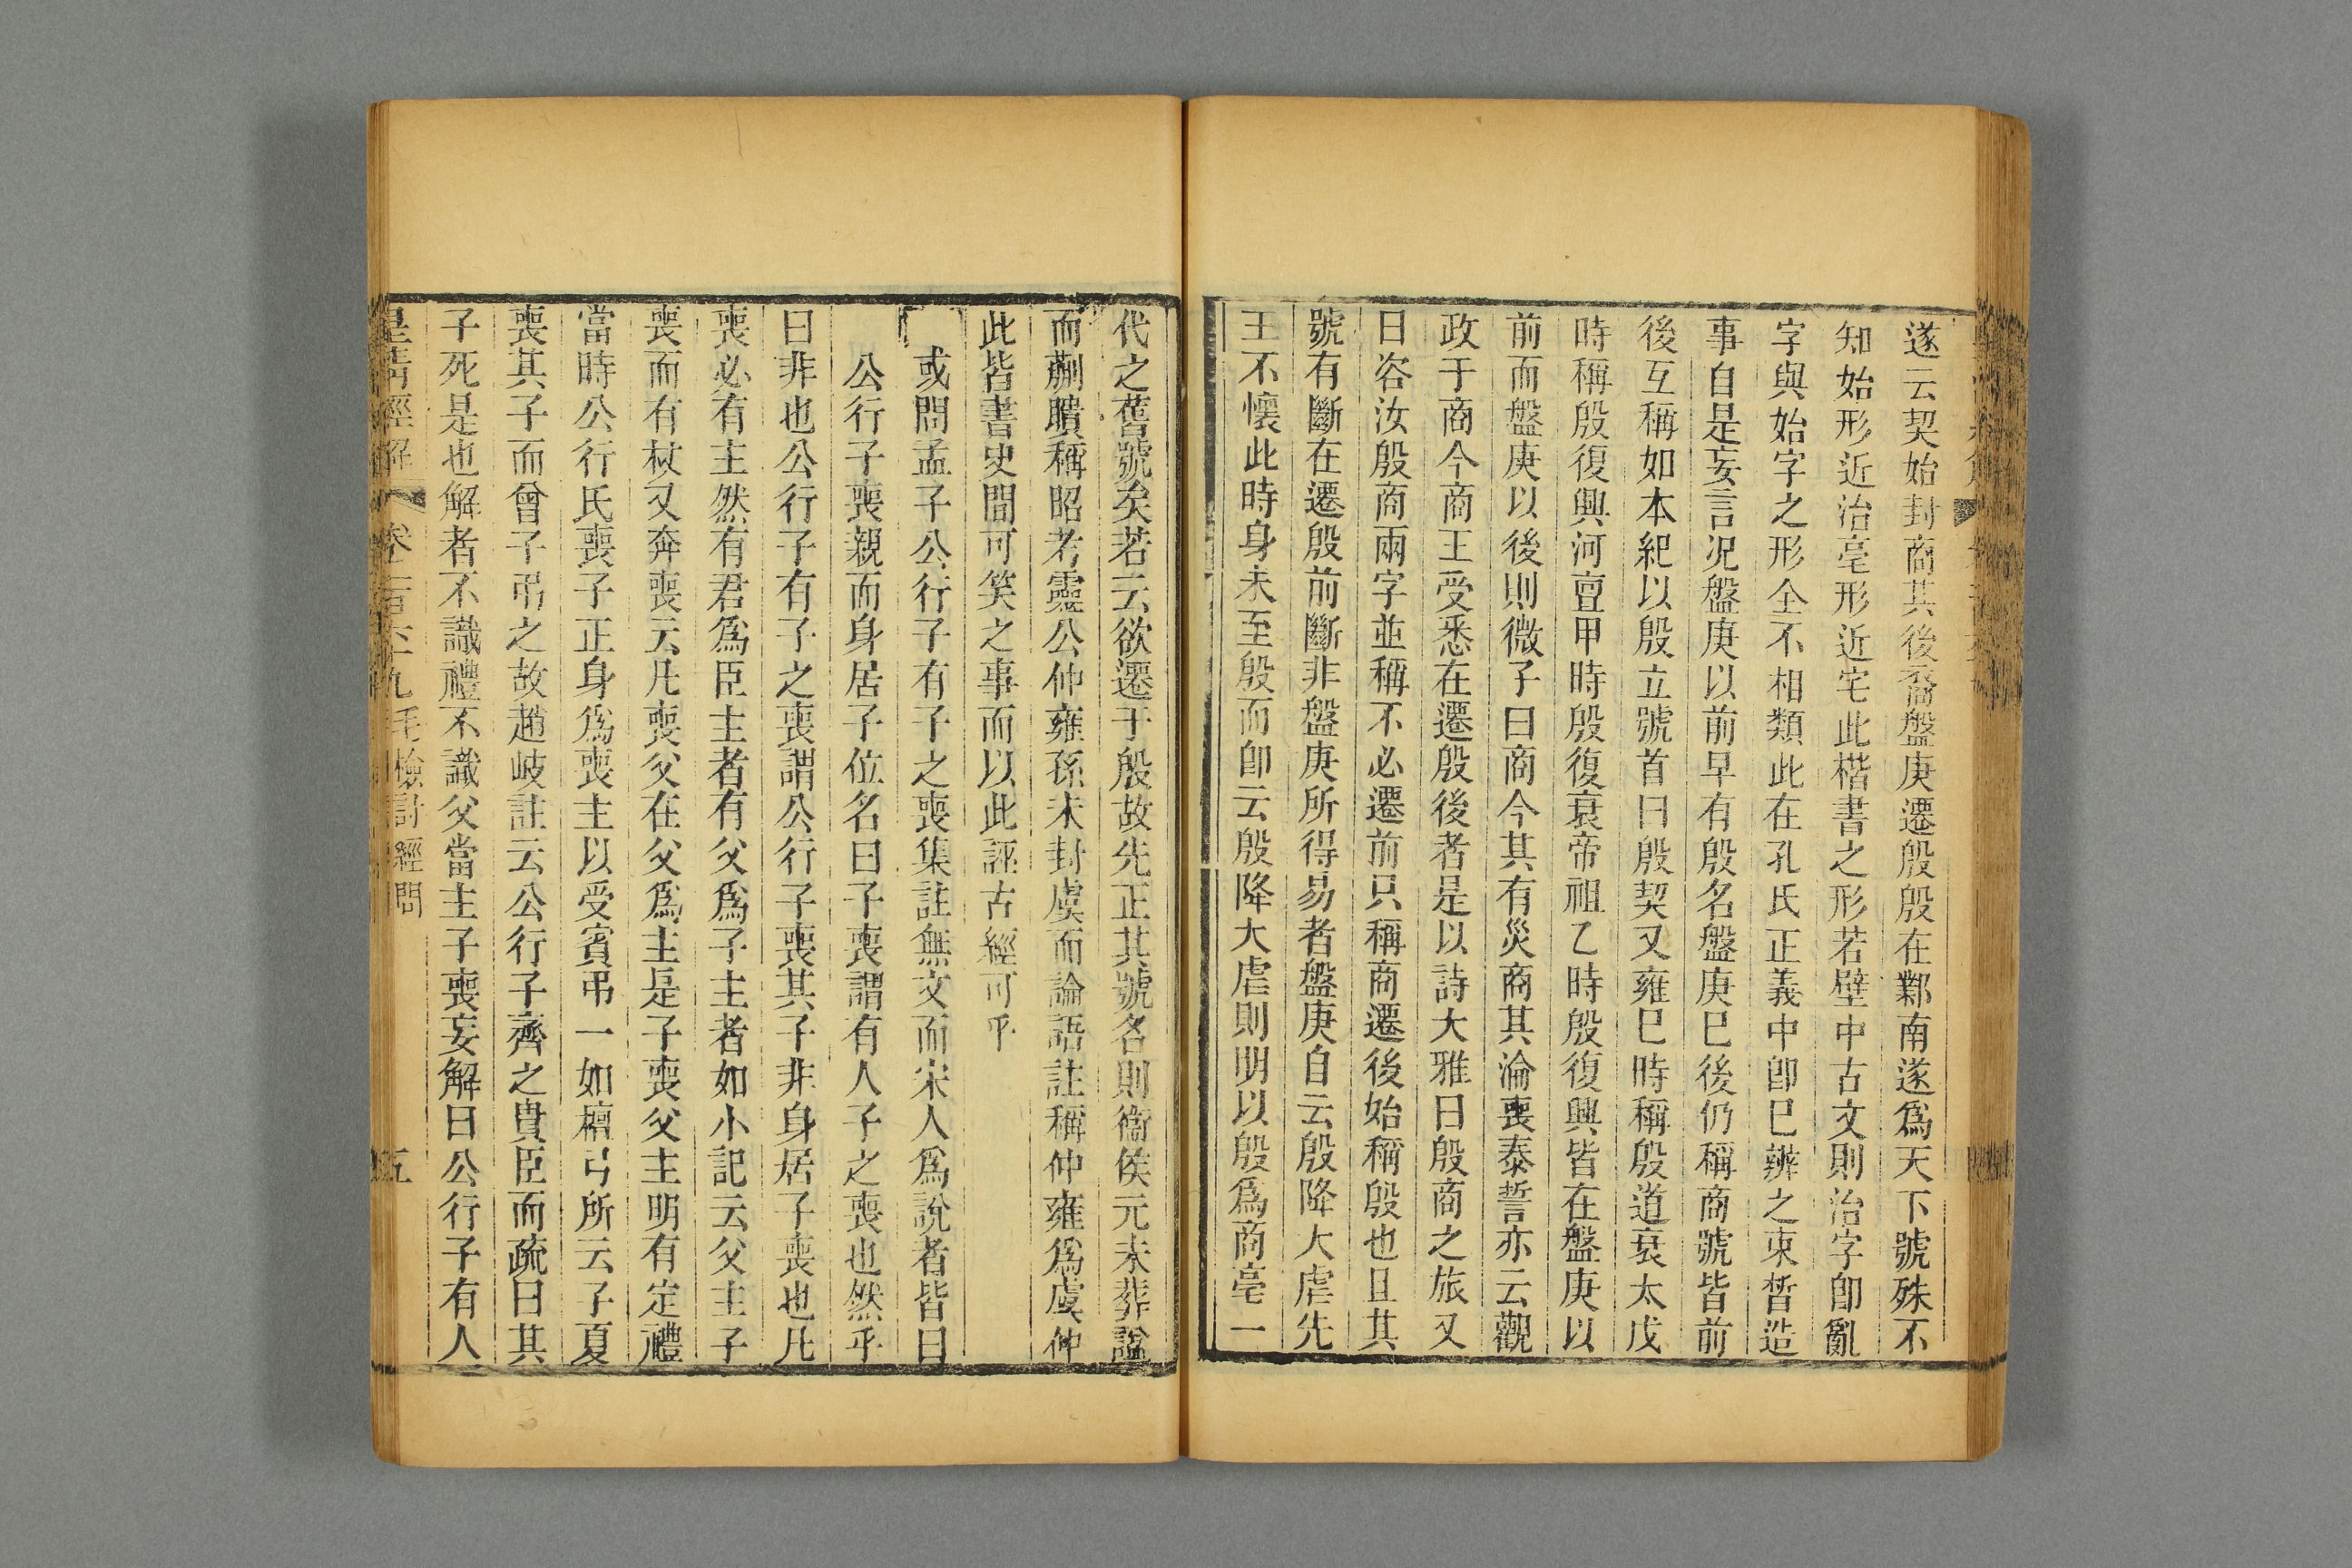 遂云契始封商其後裔盤庚遷殷殷在鄴南遂爲天下號殊不
知始形近治亳形近宅此楷書之形若壁中古文則治字卽亂
字與始字之形全不相類此在孔氏正義中卽巳辨之束晳造
事自是妄言况盤庚以前早有殷名盤庚巳後仍稱商號皆前
後互稱如本紀以殷立號首曰殷契又雍巳時稱殷道衰太戊
時稱殷復興河亶甲時殷復衰帝祖乙時殷復興皆在盤庚以
前而盤庚以後則微子曰商今其有災商其淪喪泰誓亦云觀
政于商今商王受悉在遷殷後者是以詩大雅曰殷商之旅又
曰咨汝殷商兩字並稱不必遷前只稱商遷後始稱殷也且其
號有斷在遷殷前斷非盤庚所得易者盤庚自云殷降大虐先
王不懷此時身未至殷而卽云殷降大虐則明以殷爲商亳一
代之舊號矣若云欲遷于殷故先正其號名則衞侯元未葬諡
而蒯聵稱昭考靈公仲雍孫未封虞而論語註稱仲雍爲虞仲
此皆書史間可笑之事而以此誣古經可乎
或問孟子公行子有子之喪集註無文而宋人爲說者皆曰
公行子喪親而身居子位名曰子喪謂有人子之喪也然乎
曰非也公行子有子之喪謂公行子喪其子非身居子喪也凡
喪必有主然有君爲臣主者有父爲子主者如小記云父主子
喪而有杖又奔喪云凡喪父在父爲主是子喪父主明有定禮
當時公行氏喪子正身爲喪主以受賓弔一如檀弓所云子夏
喪其子而曾子弔之故趙岐註云公行子齊之貴臣而疏曰其
子死是也解者不識禮不識父當主子喪妄解曰公行子有人
皇淸經解 卷一百六十九 毛檢討經問 五